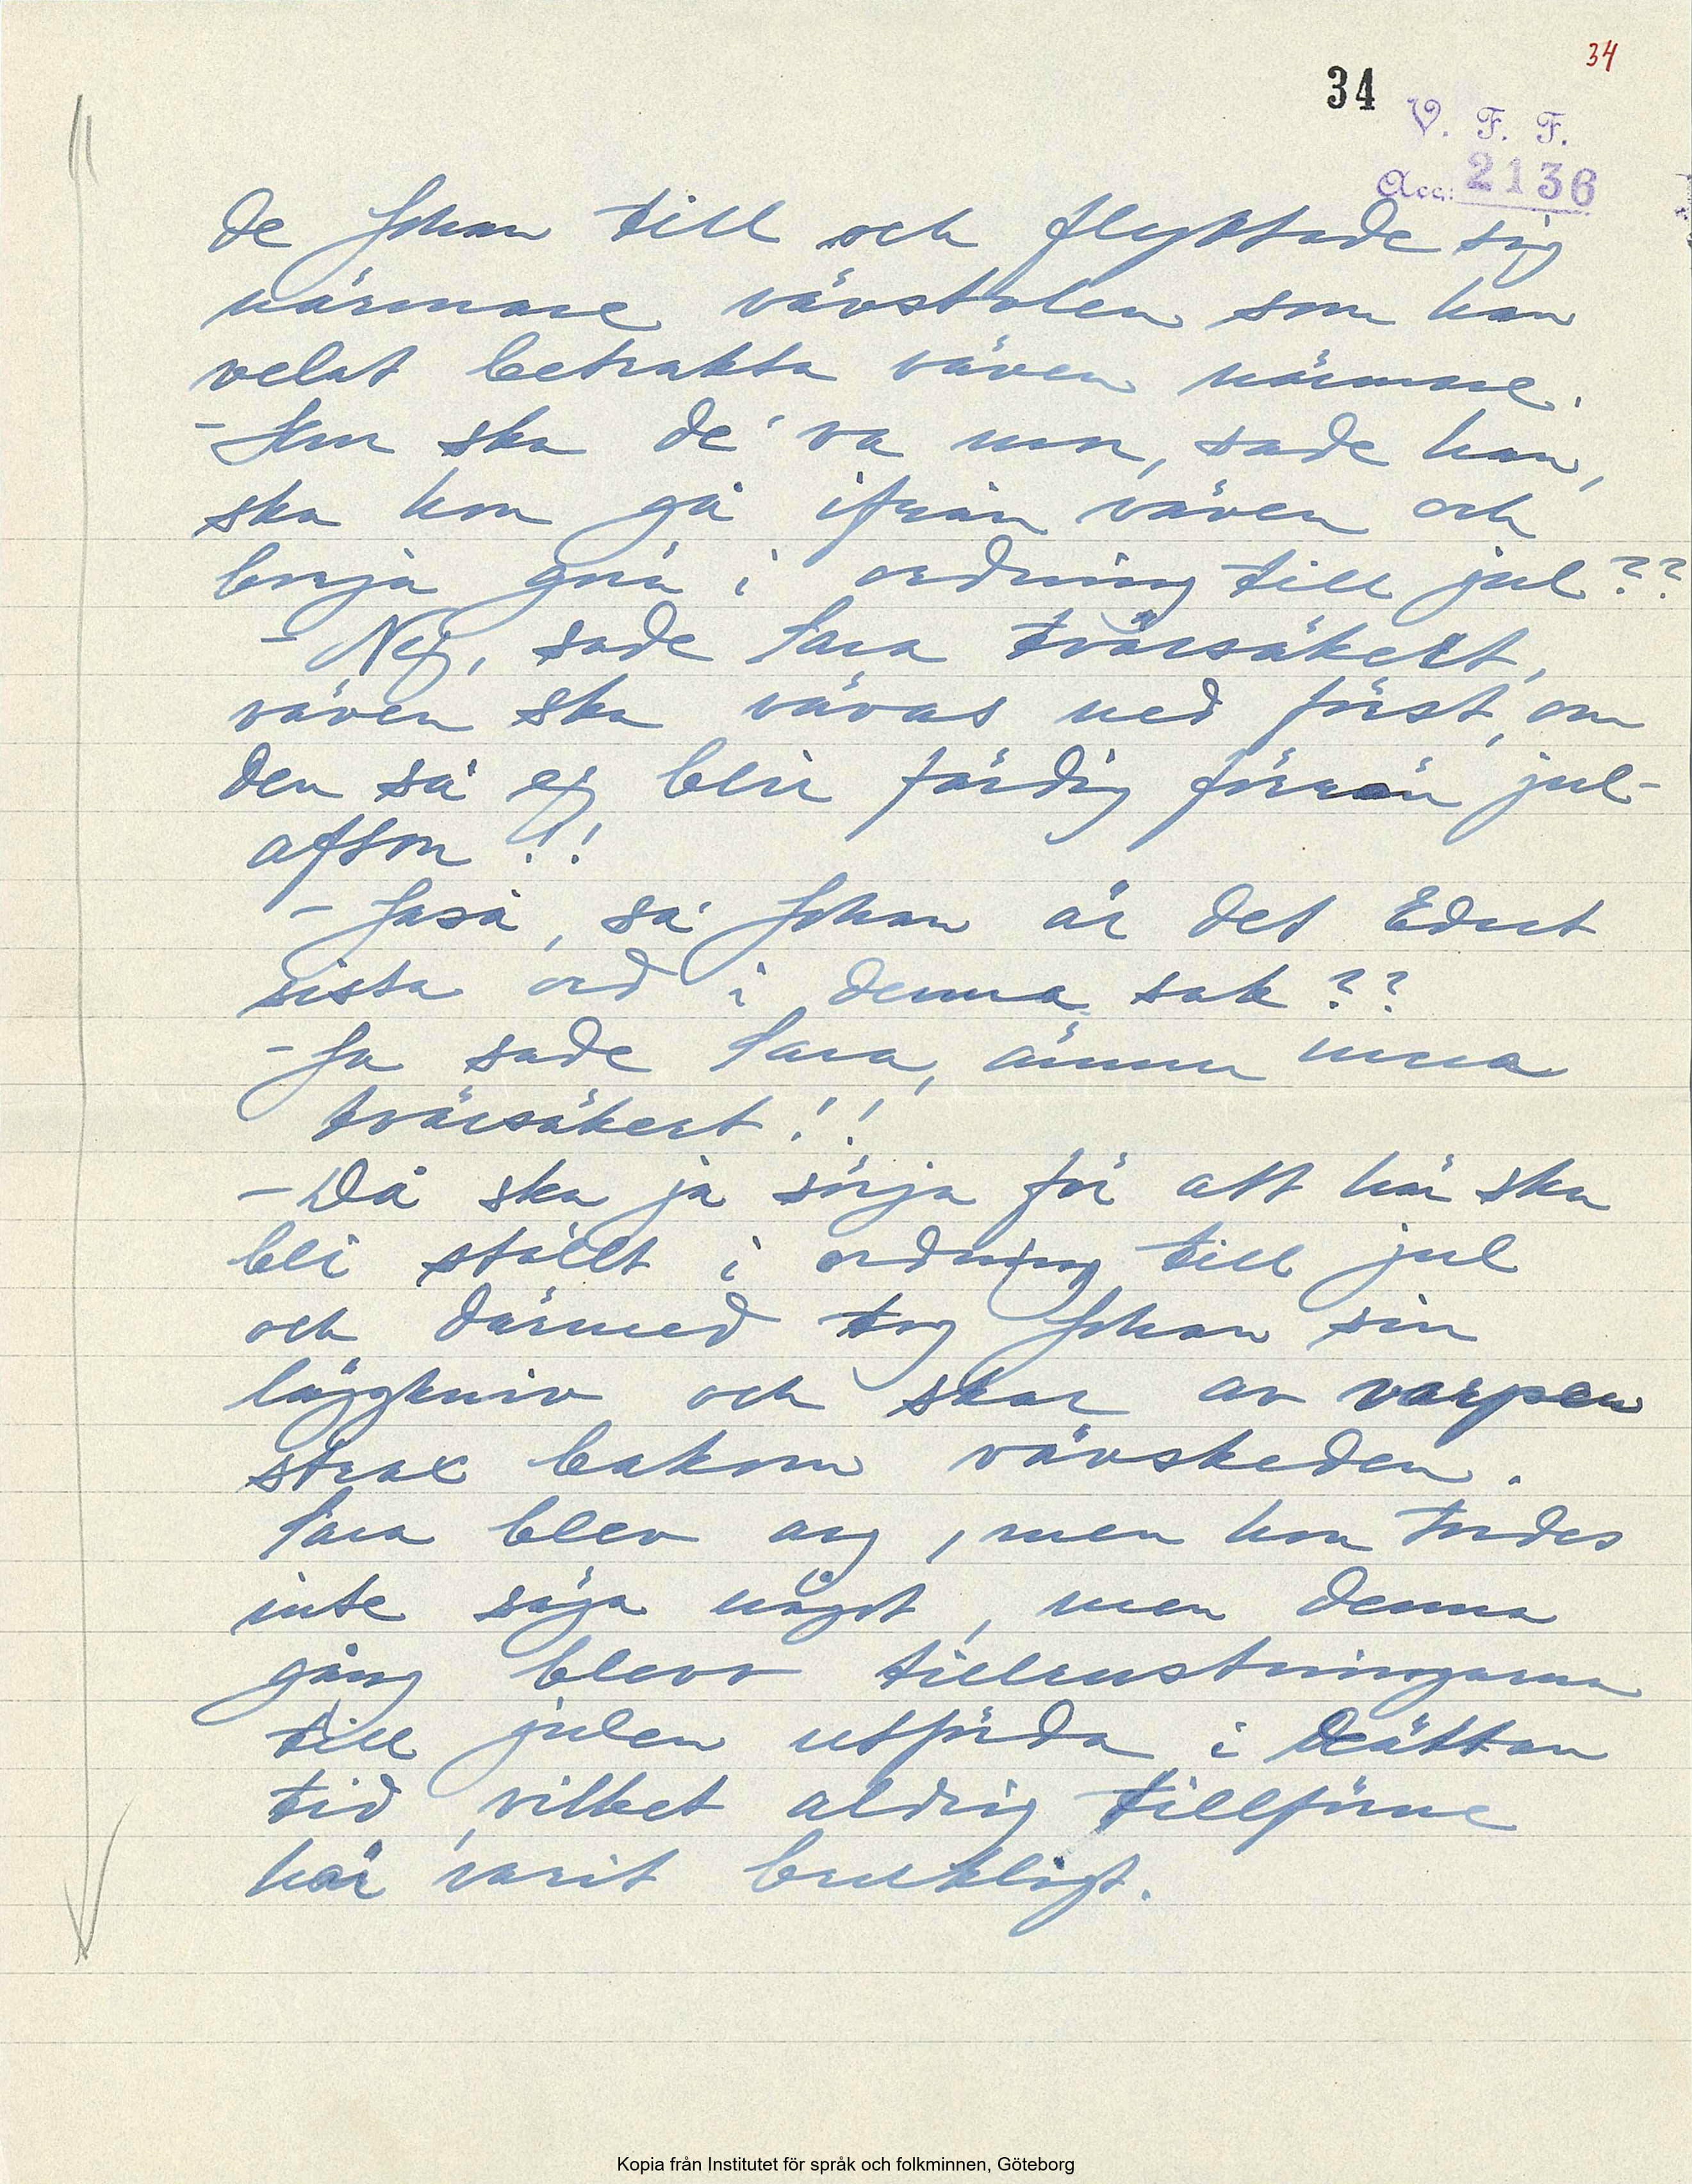 34
34
V. F. F.
Acc: 2136
de Johan till och flyttade sig
närmare vävstolen som han
velat betrakta väven närmare.
- Hur ska de' va mor, sade han,
ska hon gå ifrån väven och
börja göra i ordning till jul??
- Nej, sade Sara tvärsäkert,
väven ska vävas ned först, om
den så ej blir färdig förrän jul-
afton!!
- Jaså, sa' Johan är det Edert
sista ord i denna sak??
- Ja sade Sara, ännu mera
tvärsäkert!!
- Då ska ja sörja för att här ska
bli ställt i ordning till jul
och därmed tog Johan sin
läggkniv och skar av varpen
strax bakom vävskeden.
Sara blev arg, men hon tordes
inte säga något, men denna
gång blevo tillrustningarna
till julen utförda i rättan
tid, vilket aldrig tillförne
här varit brukligt.
Kopia från Institutet för språk och folkminnen, Göteborg